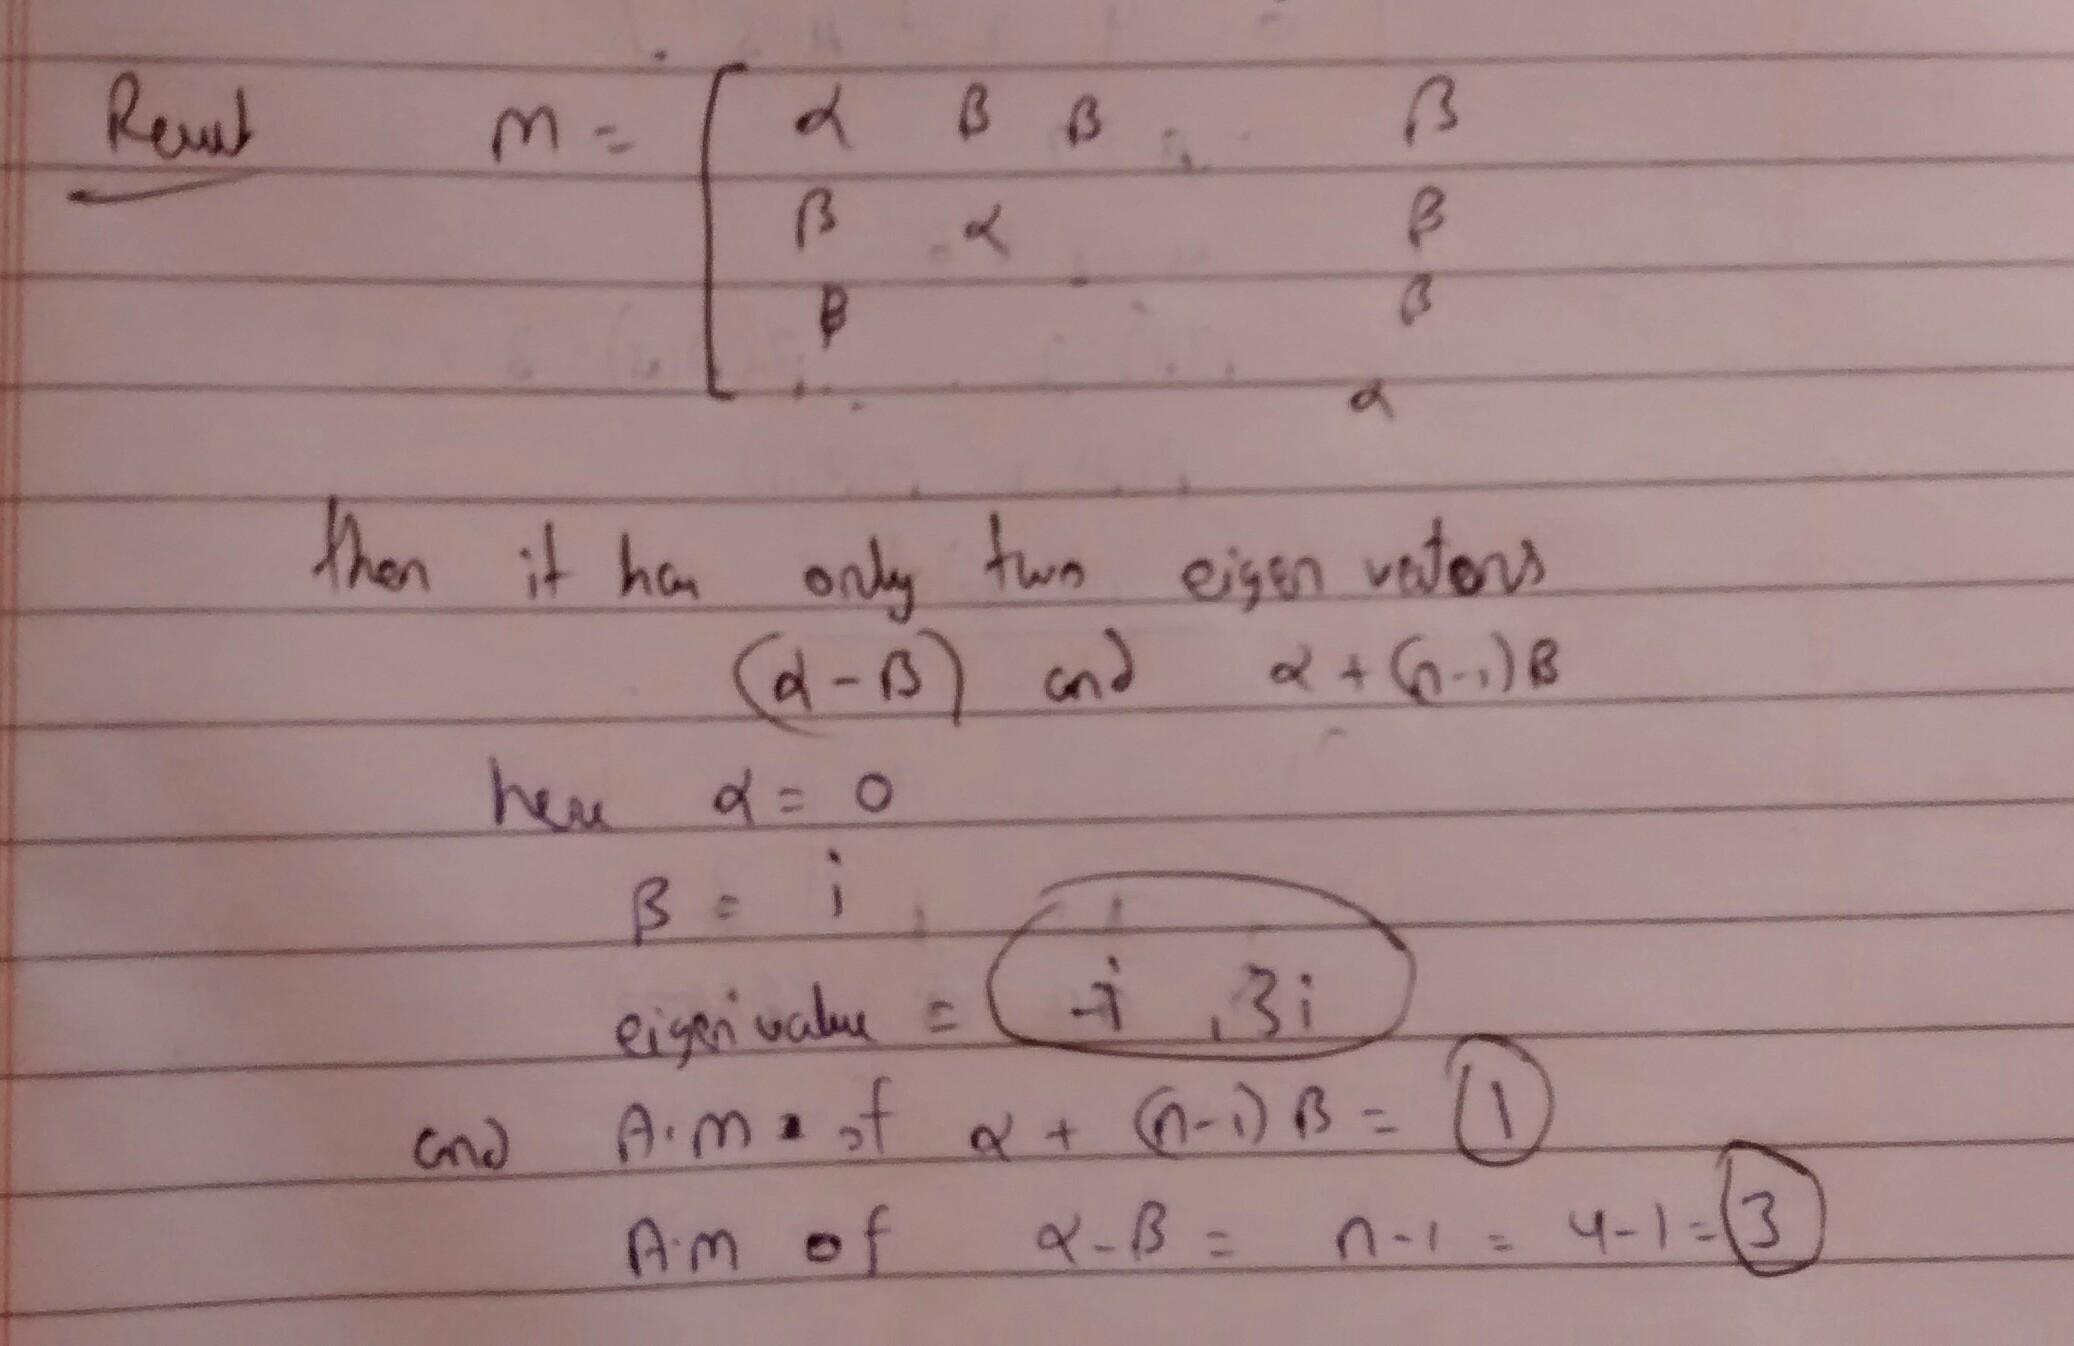 Result M = [ α β β . . β
β α . β
β β
. . α
then it has only two eigen vectors
(α-β) and α + (n-1)β
here α = 0
β = i
eigen value = -i , 3i
and A.M of α + (n-1) β = 1
A.M of α-β = n-1 = 4-1 = 3